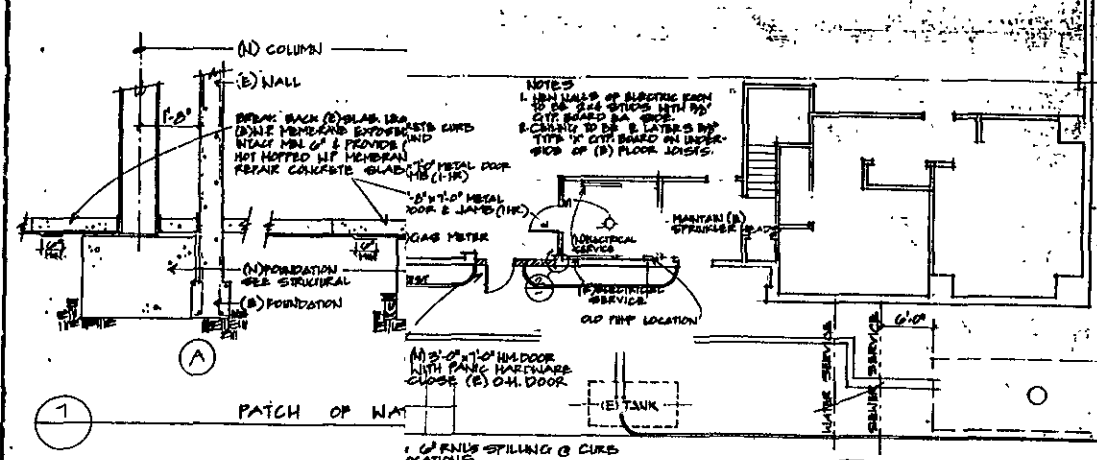 (N) COLUMN
(E) WALL
1'-8"
BREAK BACK (E) SLAB
(E) W.P. MEMBRANE EXPOSE
INTACT MIN 6" & PROVIDE
HOT MOPPED W.P. MEMBRAN
REPAIR CONCRETE SLAB
(N) FOUNDATION
SEE STRUCTURAL
(E) FOUNDATION
A
7
PATCH OF WAT
NOTES
1. NEW WALLS OF ELECTRIC ROOM
TO BE 2x4 STUDS WITH 5/8"
GYP. BOARD EA. SIDE.
2. CEILING TO BE 2 LAYERS 5/8"
TYPE 'X' GYP. BOARD ON UNDER-
SIDE OF (E) FLOOR JOISTS.
CURB
7'-0" METAL DOOR
(1-HR)
'-8"x7'-0" METAL
DOOR & JAMB (1HR)
GAS METER
MAINTAIN (E)
SPRINKLER HEADS
(N) ELECTRICAL
SERVICE
(E) ELECTRICAL
SERVICE
OLD PUMP LOCATION
(N) 3'-0"x7'-0" HM DOOR
WITH PANIC HARDWARE
CLOSE (E) O.H. DOOR
(E) TANK
WATER SERVICE
SEWER SERVICE
6'-0"
SPILLING @ CURB